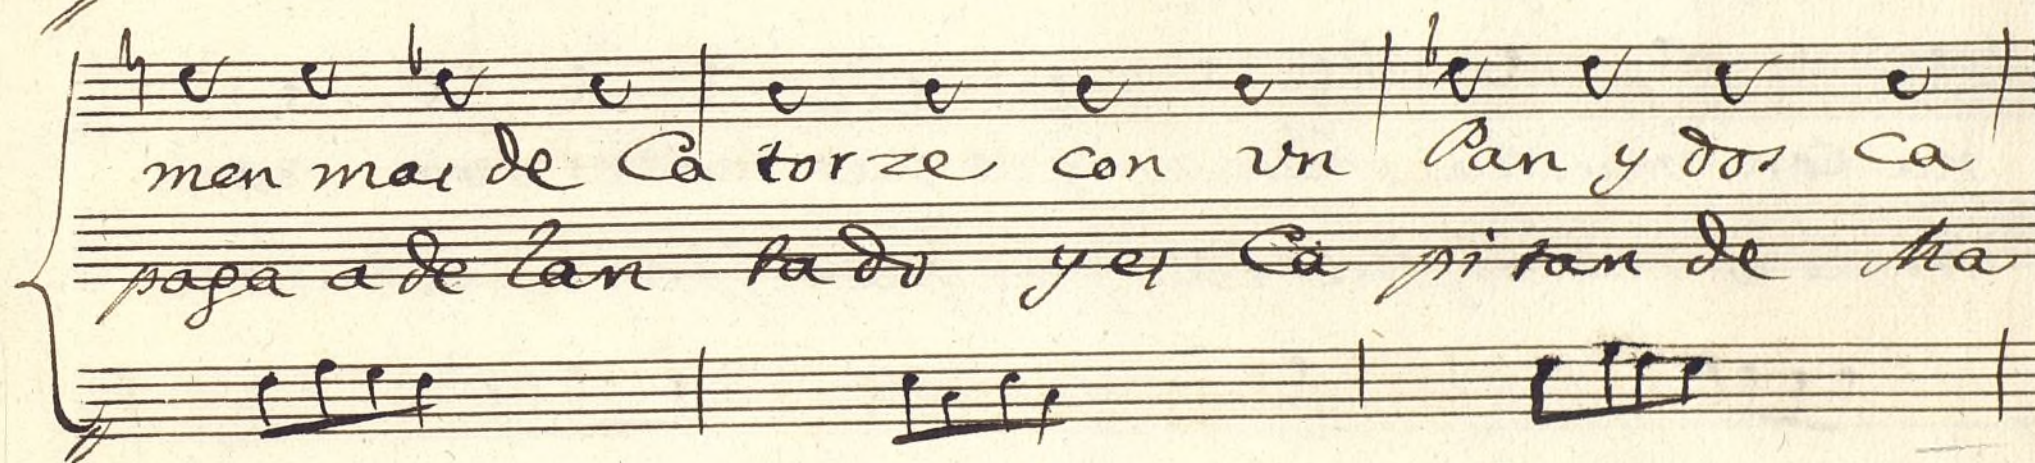 men mas de Ca torze con vn Pan y dos Ca
paga a de lan tado y es Ca pi tan de Ma